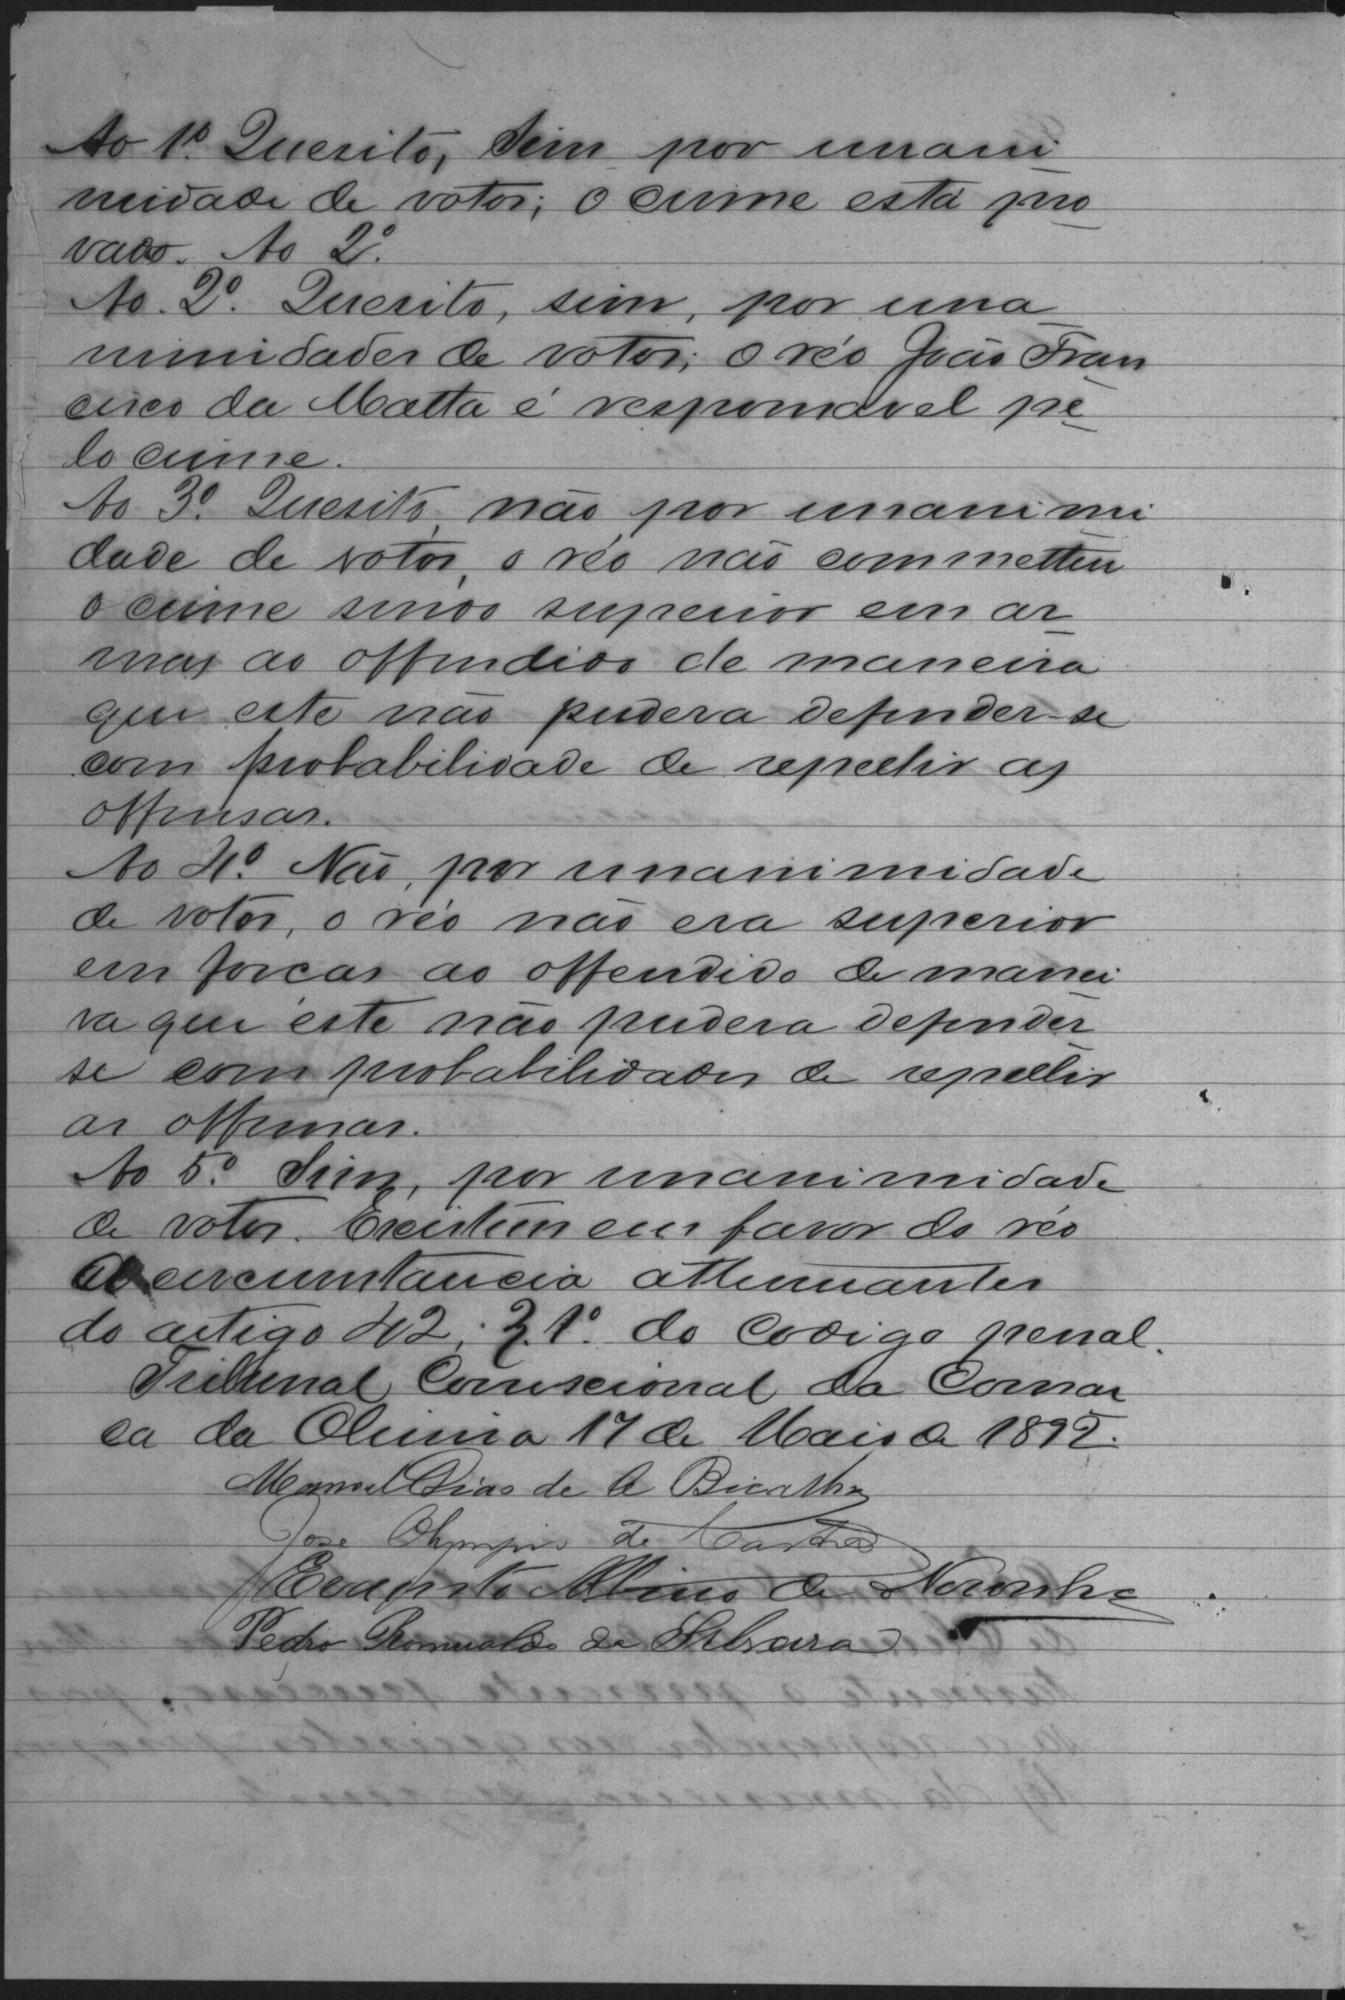 Ao 1º Quesito, Sim por unani
midade de votos; o crime está pro
vado. Ao 2º.
Ao. 2º. Quesito, sim, por una
nimidades de votos; o réo João Fran
cisco da Matta é responsavel pe
lo crime.
Ao 3º. Quesito, não por unanimi
dade de votos, o réo não commetteu
o crime sendo superior em ar
mas ao offendido de maneira
que este não pudera defender-se
com probabilidade de repellir as
offensas.
Ao 4º. Não, por unanimidade
de votos, o réo não era superior
em forcas ao offendido de manei
ra que este não pudera defender
se com probabilidades de repellir
as offensas.
Ao 5º. Sim, por unanimidade
de votos. Existem em favor do réo
circumstancia attenuantes
do artigo 42, § 1º. do Codigo penal.
Tribunal Correcional da Comar
ca da 17 de Maio de 1892.
Manoel Dias de A Bicalho
José Olympio de Castro
Evaristo Albino de Noronha
Pedro Romualdo da